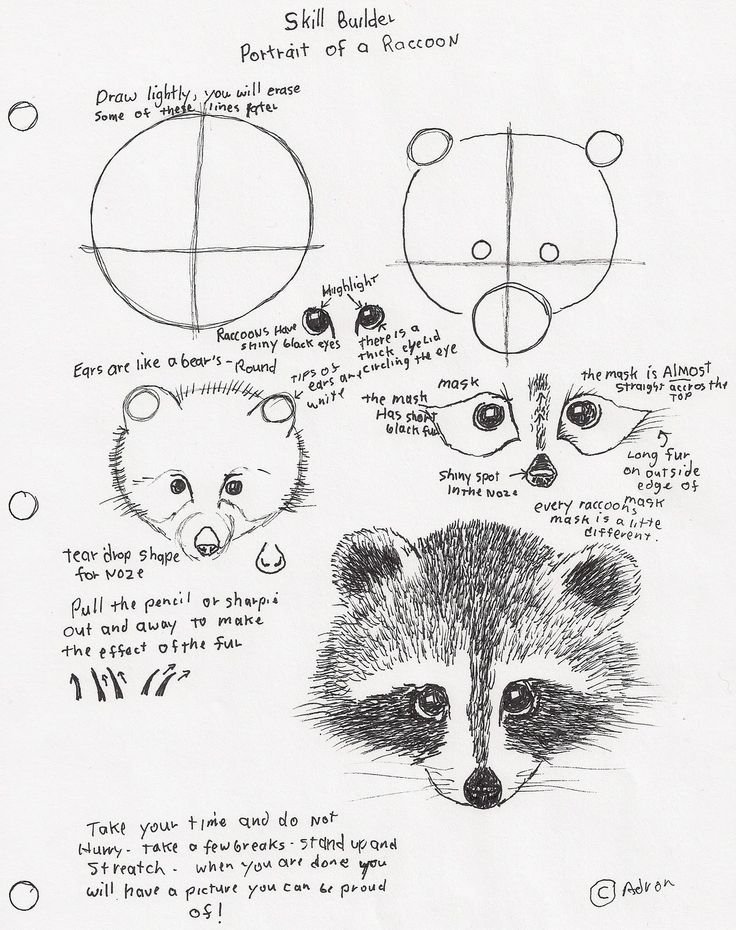 Skill Builder
Portrait of a Raccoon
Draw lightly, you will erase
some of these lines later
Highlight
Raccoons Have
shiny black eyes
there is a
thick eyelid
circling the eye
Ears are like a bear's - Round
Tips of
ears are
white
mask
the mask is ALMOST
straight accros the
TOP
the mask
Has short
black fur
Long fur
on outside
edge of
mask
Shiny spot
in the Noze
every raccoons
mask is a litte
different.
tear drop shape
for Noze
Pull the pencil or sharpie
out and away to make
the effect of the fur
Take your time and do Not
Hurry - Take a few breaks - stand up and
Streatch - when you are done you
will have a picture you can be proud
of!
© Adron